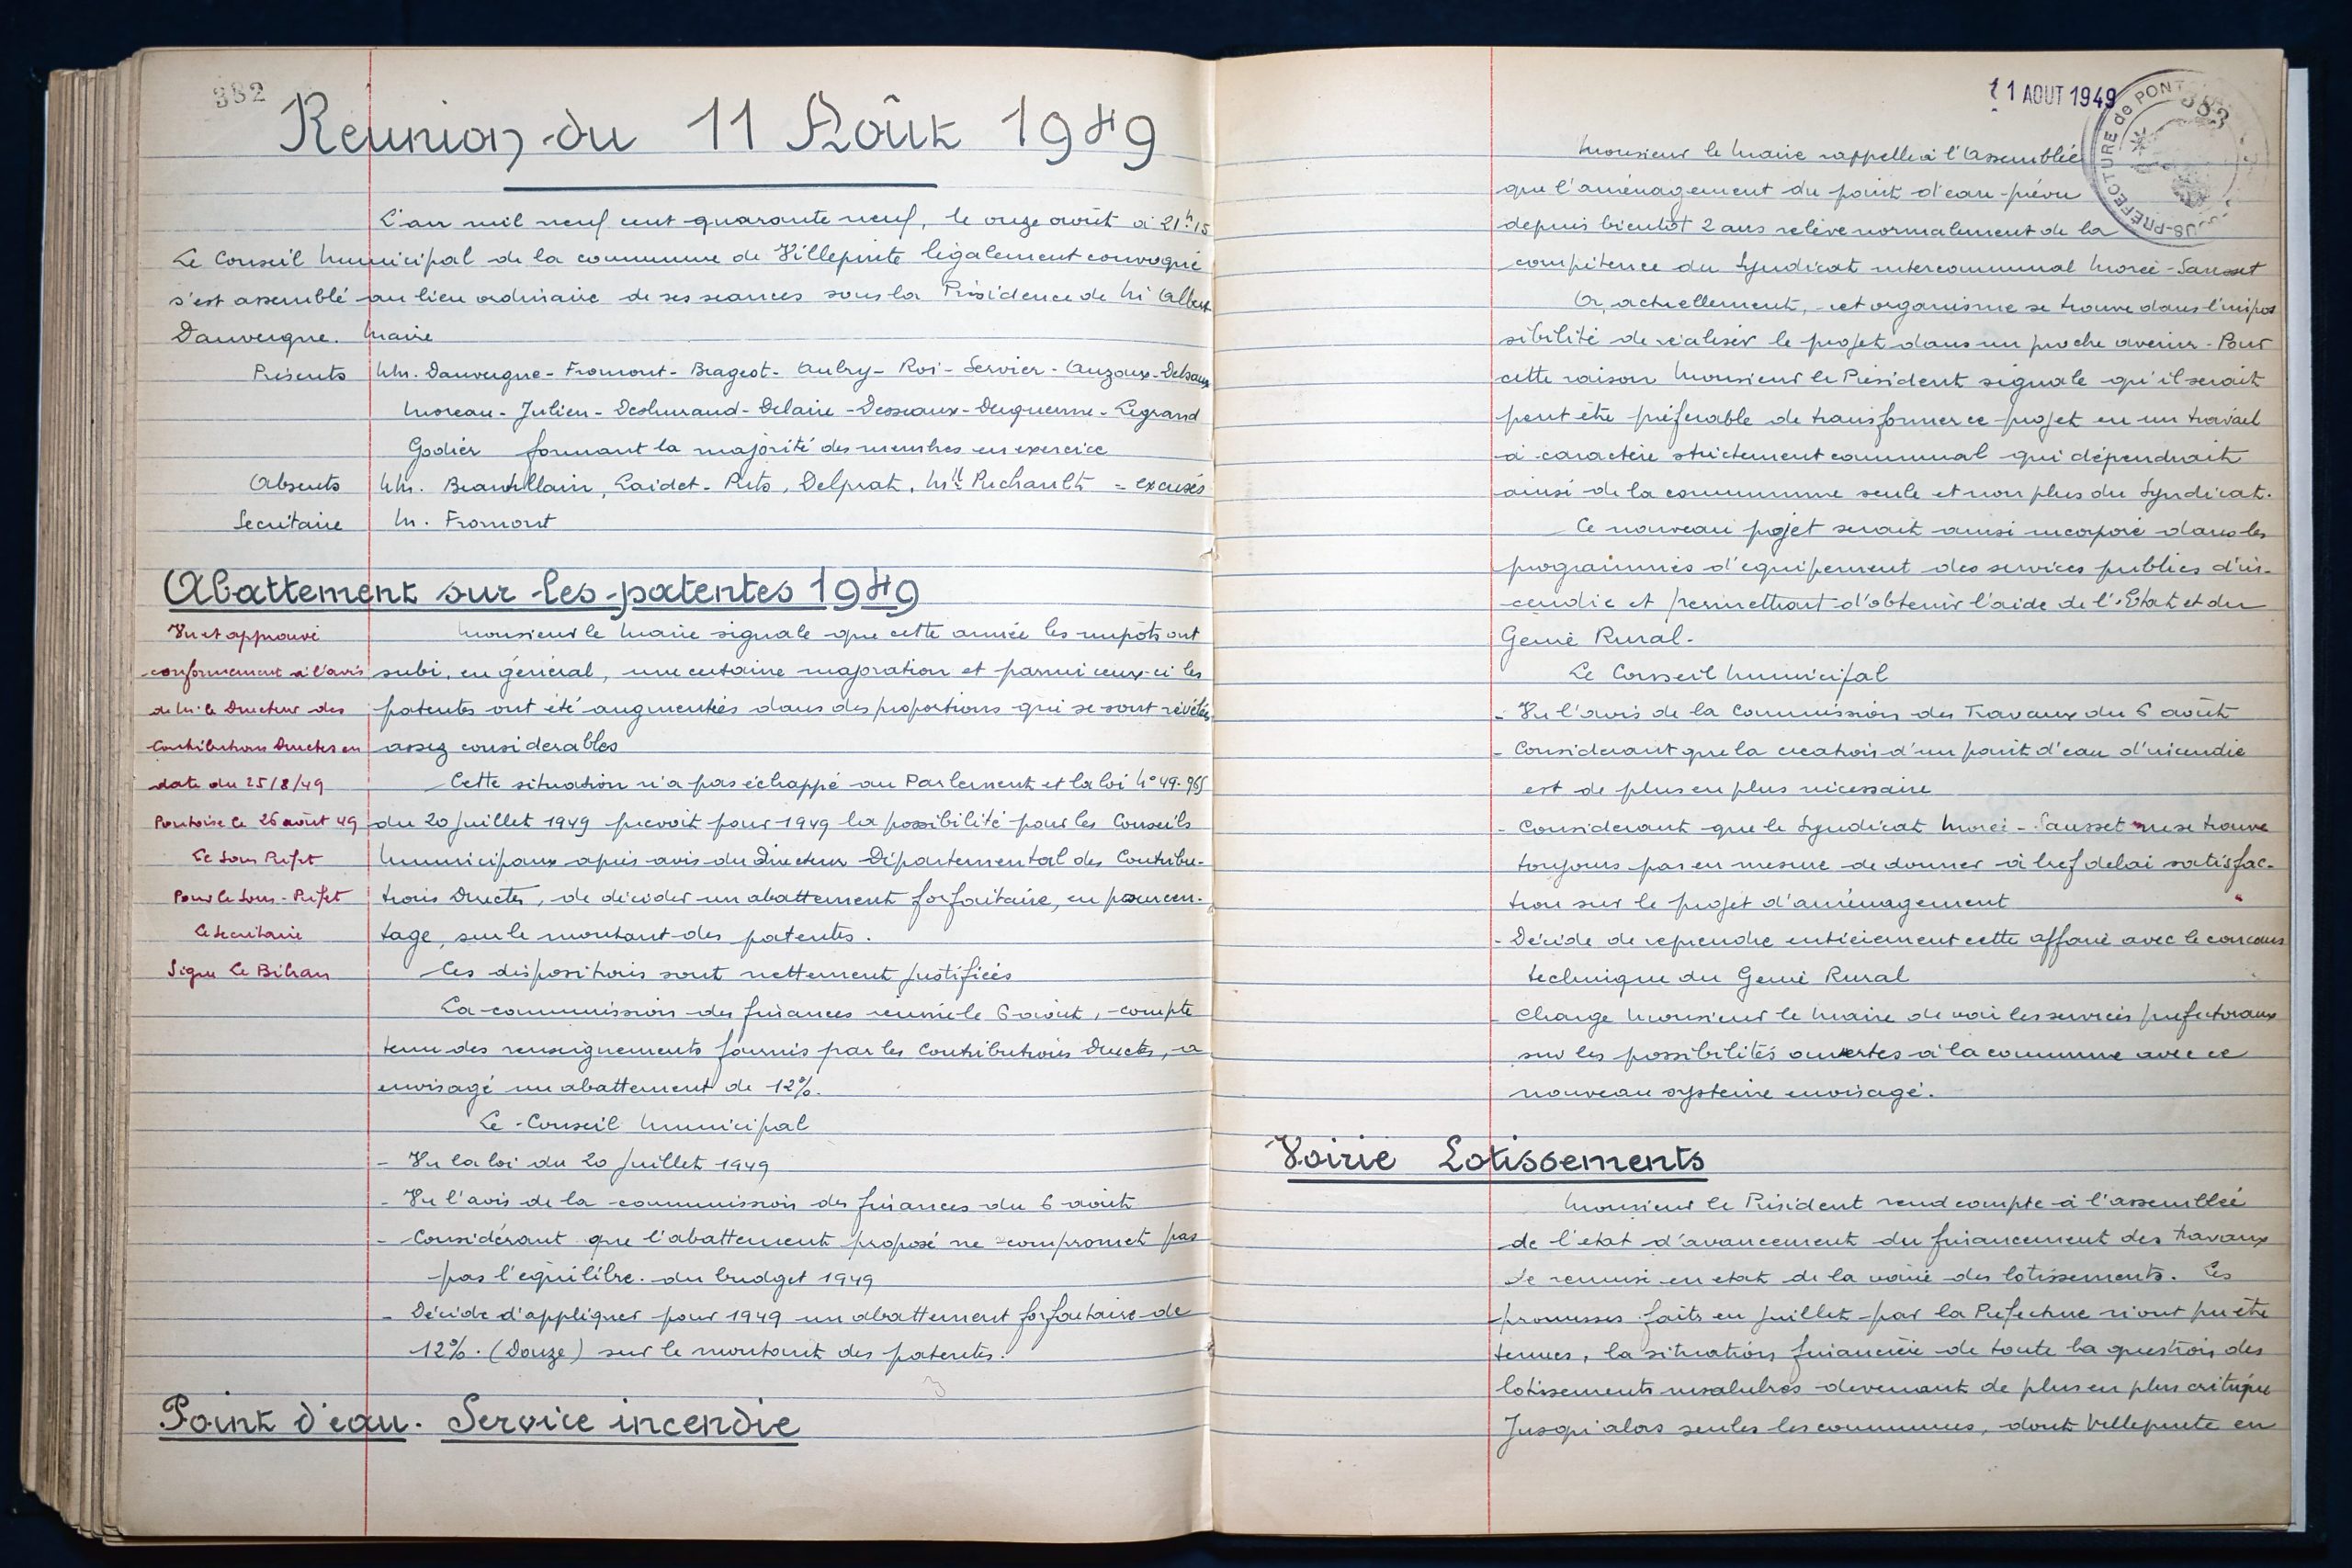 382
Réunion du 11 Août 1949
L'an mil neuf cent quarante neuf, le onze août à 21h.15
Le Conseil Municipal de la commune de Villepinte légalement convoqué
s'est assemblé au lieu ordinaire de ses séances sous la Présidence de Mr Albert
Dauvergne. Maire
Présents MM. Dauvergne - Fromont - Brageot - Aubry - Roi - Servier - Auzoux - Delsaux
Moreau - Julien - Deshuraud - Delaire - Desseaux - Duquenne - Legrand
Godier formant la majorité des membres en exercice
Absents MM. Laidet - Delprat, = excusés
Secrétaire M. Fromont
Abattement sur les patentes 1949
Vu et approuvé
conformément à l'avis
de M. le Directeur des
Contributions Directes en
date du 25/8/49
Pontoise le 26 août 49
Le Sous Préfet
Pour le Sous-Préfet
Le Secrétaire
Signé Le Bihan
Monsieur le Maire signale que cette année les impôts ont
subi, en général, une certaine majoration et parmi ceux-ci les
patentes ont été augmentées dans des proportions qui se sont révélées
assez considérables
Cette situation n'a pas échappé au Parlement et la loi N° 49-965
du 20 Juillet 1949 prévoit pour 1949 la possibilité pour les Conseils
Municipaux après avis du Directeur Départemental des Contribu-
tions Directes, de décider un abattement forfaitaire, en pourcen-
tage, sur le montant des patentes.
Ces dispositions sont nettement justifiées
La commission des finances réunie le 6 août, compte
tenu des renseignements fournis par les Contributions Directes, a
envisagé un abattement de 12%.
Le Conseil Municipal
- Vu la loi du 20 Juillet 1949
- Vu l'avis de la commission des finances du 6 août
- Considérant que l'abattement proposé ne compromet pas
pas l'équilibre du budget 1949
- Décide d'appliquer pour 1949 un abattement forfaitaire de
12%. (Douze) sur le montant des patentes.
3
Point d'eau. Service incendie
11 AOUT 1949
SOUS-PRÉFECTURE de PONT
383
Monsieur le Maire rappelle à l'Assemblée
que l'aménagement du point d'eau prévu
depuis bientôt 2 ans relève normalement de la
compétence du Syndicat intercommunal Morée-Sausset
Or, actuellement, cet organisme se trouve dans l'impos
sibilité de réaliser le projet dans un proche avenir. Pour
cette raison Monsieur le Président signale qu'il serait
peut être préférable de transformer ce projet en un travail
à caractère strictement communal qui dépendrait
ainsi de la commune seule et non plus du Syndicat.
Ce nouveau projet serait ainsi incorporé dans les
programmes d'équipement des services publics d'in-
cendie et permettrait d'obtenir l'aide de l'Etat et du
Génie Rural.
Le Conseil Municipal
- Vu l'avis de la Commission des Travaux du 6 août
- Considérant que la création d'un point d'eau d'incendie
est de plus en plus nécessaire
- Considérant que le Syndicat Morée-Sausset ne se trouve
toujours pas en mesure de donner à bref délai satisfac-
tion sur le projet d'aménagement
- Décide de reprendre entièrement cette affaire avec le concours
technique du Génie Rural
- Charge Monsieur le Maire de voir les services préfectoraux
sur les possibilités ouvertes à la commune avec ce
nouveau système envisagé.
Voirie Lotissements
Monsieur le Président rend compte à l'assemblée
de l'état d'avancement du financement des travaux
de remise en état de la voirie des lotissements. Les
promesses faites en Juillet par la Préfecture n'ont pu être
tenues, la situation financière de toute la question des
lotissements insalubres devenant de plus en plus critique
Jusqu'alors seules les communes, dont Villepinte en